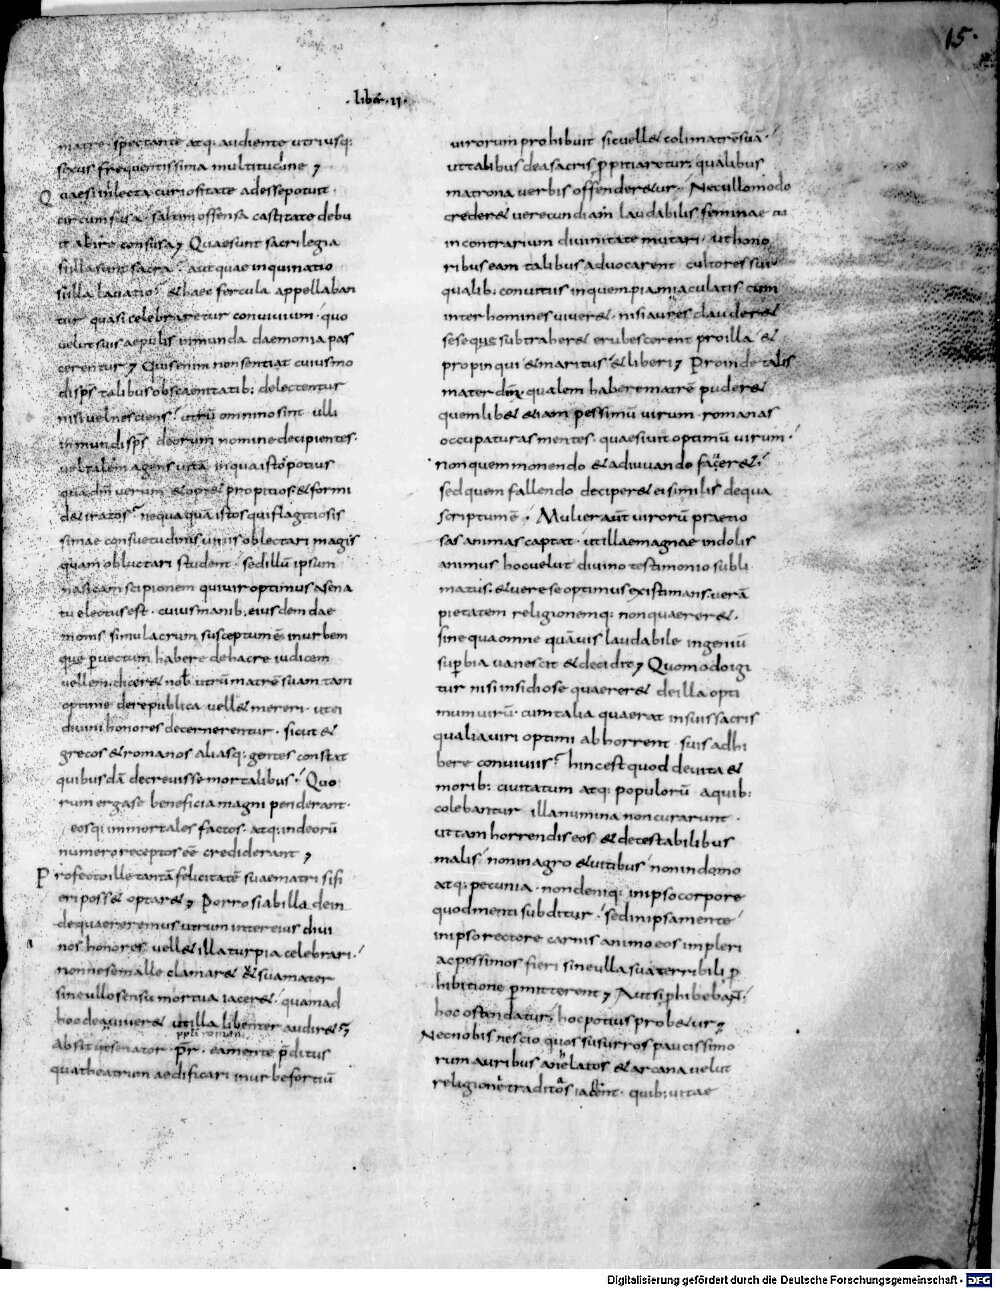 15.
· liber · II ·
matre · spectante atq; audiente utriusq;
sexus frequentissima multitudine ;
Quae si inlecta curiositate adesse potuit
circumfusa · saltim offensa castitate debu
it abire confusa ; Quae sunt sacrilegia
si illa sunt sacra · aut quae inquinatio
si illa lauatio · & haec fercula appellaban
tur quasi celebraretur conuiuium · quo
uelut suis aepulis inmunda daemonia pas
cerentur ; Quis enim non sentiat cuiusmo
di sp̄s talibus obscaenitatib; delectentur
nisi uel nesciens · utrū omnino sint ulli
inmundi sp̄s deorum nomine decipientes ·
uel talem agens uitā in qua istos potius
quā dm̄ uerum & opt& propitios & formi
d& iratos · nequaquā istos qui flagitiosis
simae consuetudinis uitiis oblectari magis
quam obluctari student · sed illū ipsum
nasicam scipionem qui uir optimus a sena
tu electus est · cuius manib; eiusdem dae
monis simulacrum susceptum ē in urbem
que peruectum habere de hac re iudicem
uellem · dicer& nob utrū matrē suam tam
optime de republica uell& mereri · ut ei
diuini honores decernerentur · sicut &
grecos & romanos aliasq; gentes constat
quibusdā decreuisse mortalibus · Quo
rum erga se beneficia magni penderant ·
eosq; immortales factos · atq; in deorū
numero receptos eē crediderant ;
Profecto ille tantā felicitatē suae matri si fi
eri poss& optar& ; Porro si ab illa dein
de quaereremus utrum inter eius diui
nos honores uell& illa turpia celebrari ·
nonne se malle clamar& ut sua mater
sine ullo sensu mortua iacer& · quam ad
hoc dea uiuer& ut illa libenter audir& ;
ppli romani
Absit ut senator · pr̄ · ea mente p̄ditus
qua theatrum aedificari in urbe fortiū
uirorum prohibuit sic uell& coli matrē suā ·
ut talibus dea sacris propitiaretur · qualibus
matrona uerbis offender&ur · Nec ullo modo
creder& uerecundiam laudabilis feminae ita
in contrarium diuinitate mutari · ut hono
ribus eam talibus aduocarent cultores sui ·
qualib; conuitiis in quempiam iaculatis cum
inter homines uiuer& · nisi aures clauder&
seseque subtraher& erubescerent pro illa &
propinqui & maritus & liberi ; Proinde talis
mater dm̄ · qualem habere matrē puder&
quemlib& &iam pessimū uirum · romanas
occupatura mentes · quaesiuit optimū uirum ·
non quem monendo & adiuuando facer& ·
sed quem fallendo deciper& ei similis de qua
scriptum ē · Mulier aūt uirorū praetio
sas animas captat · ut ille magnae indolis
animus hoc uelut diuino testimonio subli
matus · & uere se optimus existimans · uerā
pietatem religionemq; non quaerer& ·
sine qua omne quāuis laudabile ingeniū
superbia uanescit & decidit ; Quomodo igi
tur nisi insidiose quaerer& dea illa opti
mum uirū · cum talia quaerat in suis sacris
qualia uiri optimi abhorrent suis adhi
bere conuiuiis · hinc est quod de uita &
morib; ciuitatum atq; populorū a quib;
colebantur illa numina non curarunt ·
ut tam horrendis eos & detestabilibus
malis non in agro & uitibus non in domo
atq; pecunia · non deniq; in ipso corpore
quod menti subditur · sed in ipsa mente
in ipso rectore carnis animo eos impleri
ac pessimos fieri sine ulla sua terribili p
hibitione permitterent ; Aut si phibebant
hoc ostendatur · hoc potius prob&ur ;
Nec nobis nescio quos susurros paucissimo
rum auribus anhelatos & arcana uelut
religione traditos iactent · quib; uitae
Digitalisierung gefördert durch die Deutsche Forschungsgemeinschaft - DFG